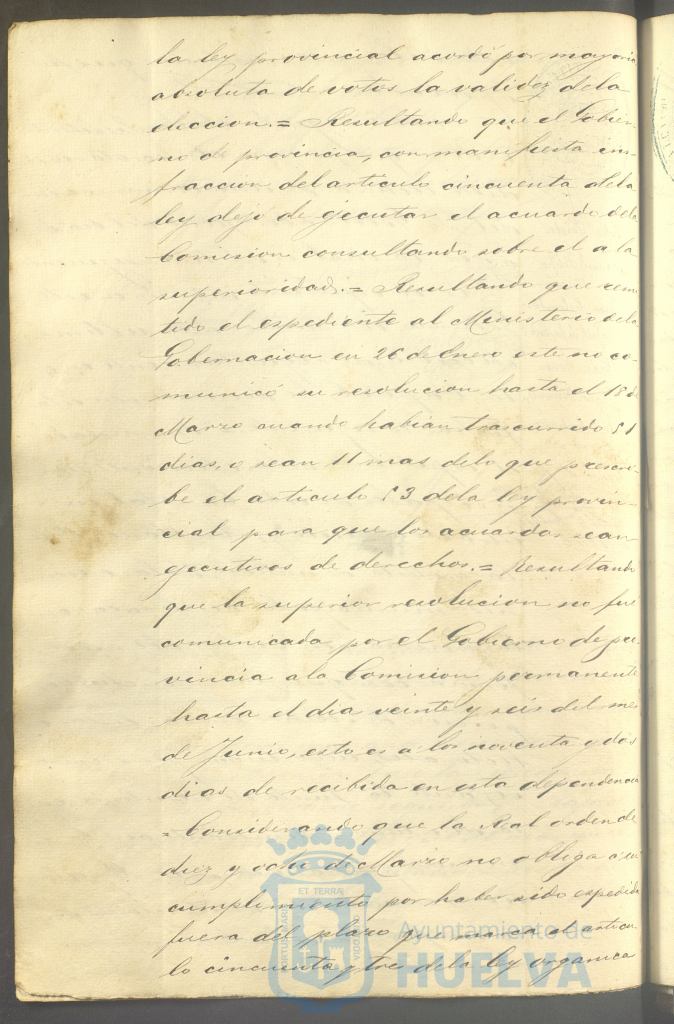 la ley provincial acordó por mayoria
absoluta de votos la validez dela
eleccion.= Resultando que el Gobier-
no de provincia, con manifiesta in-
fraccion del articulo cincuenta dela
ley dejó de ejecutar el acuerdo dela
Comision consultando sobre el a la
superioridad.= Resultando que remi
tido el espediente al Ministerio dela
Gobernacion en 26 de Enero este no co-
municó su resolucion hasta el 18 de
Marzo cuando habian trascurrido 51
dias, o sean 11 mas delo que prescri-
be el articulo 53 dela ley provin-
cial para que los acuerdos sean
ejecutivos de derecho.= Resultando
que la superior resolucion no fue
comunicada por el Gobierno de pro-
vincia a la Comision permanente
hasta el dia veinte y seis del mes
de Junio, esto es a los noventa y dos
dias de recibida en esta dependencia
= Considerando que la Real orden de
diez y ocho de Marzo no obliga a su
cumplimiento por haber sido espedida
fuera del plazo que marca el articu-
lo cincuenta y tres de la ley organica
ET TERRA
Ayuntamiento de
HUELVA